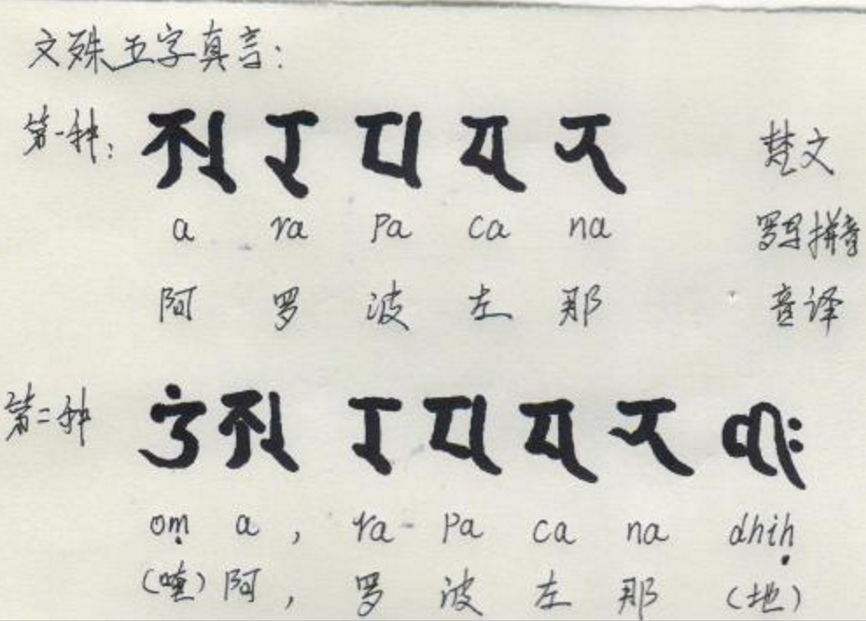 文殊五字真言:
第一种: 𑖀 𑖨 𑖢 𑖓 𑖡 梵文
a ra pa ca na 罗马拼音
阿 罗 波 左 那 音译
第二种 𑖌𑖽 𑖀 𑖨 𑖢 𑖓 𑖡 𑖠𑖱𑖾
oṃ a , ra - pa ca na dhiḥ
(唵) 阿 , 罗 波 左 那 (地)